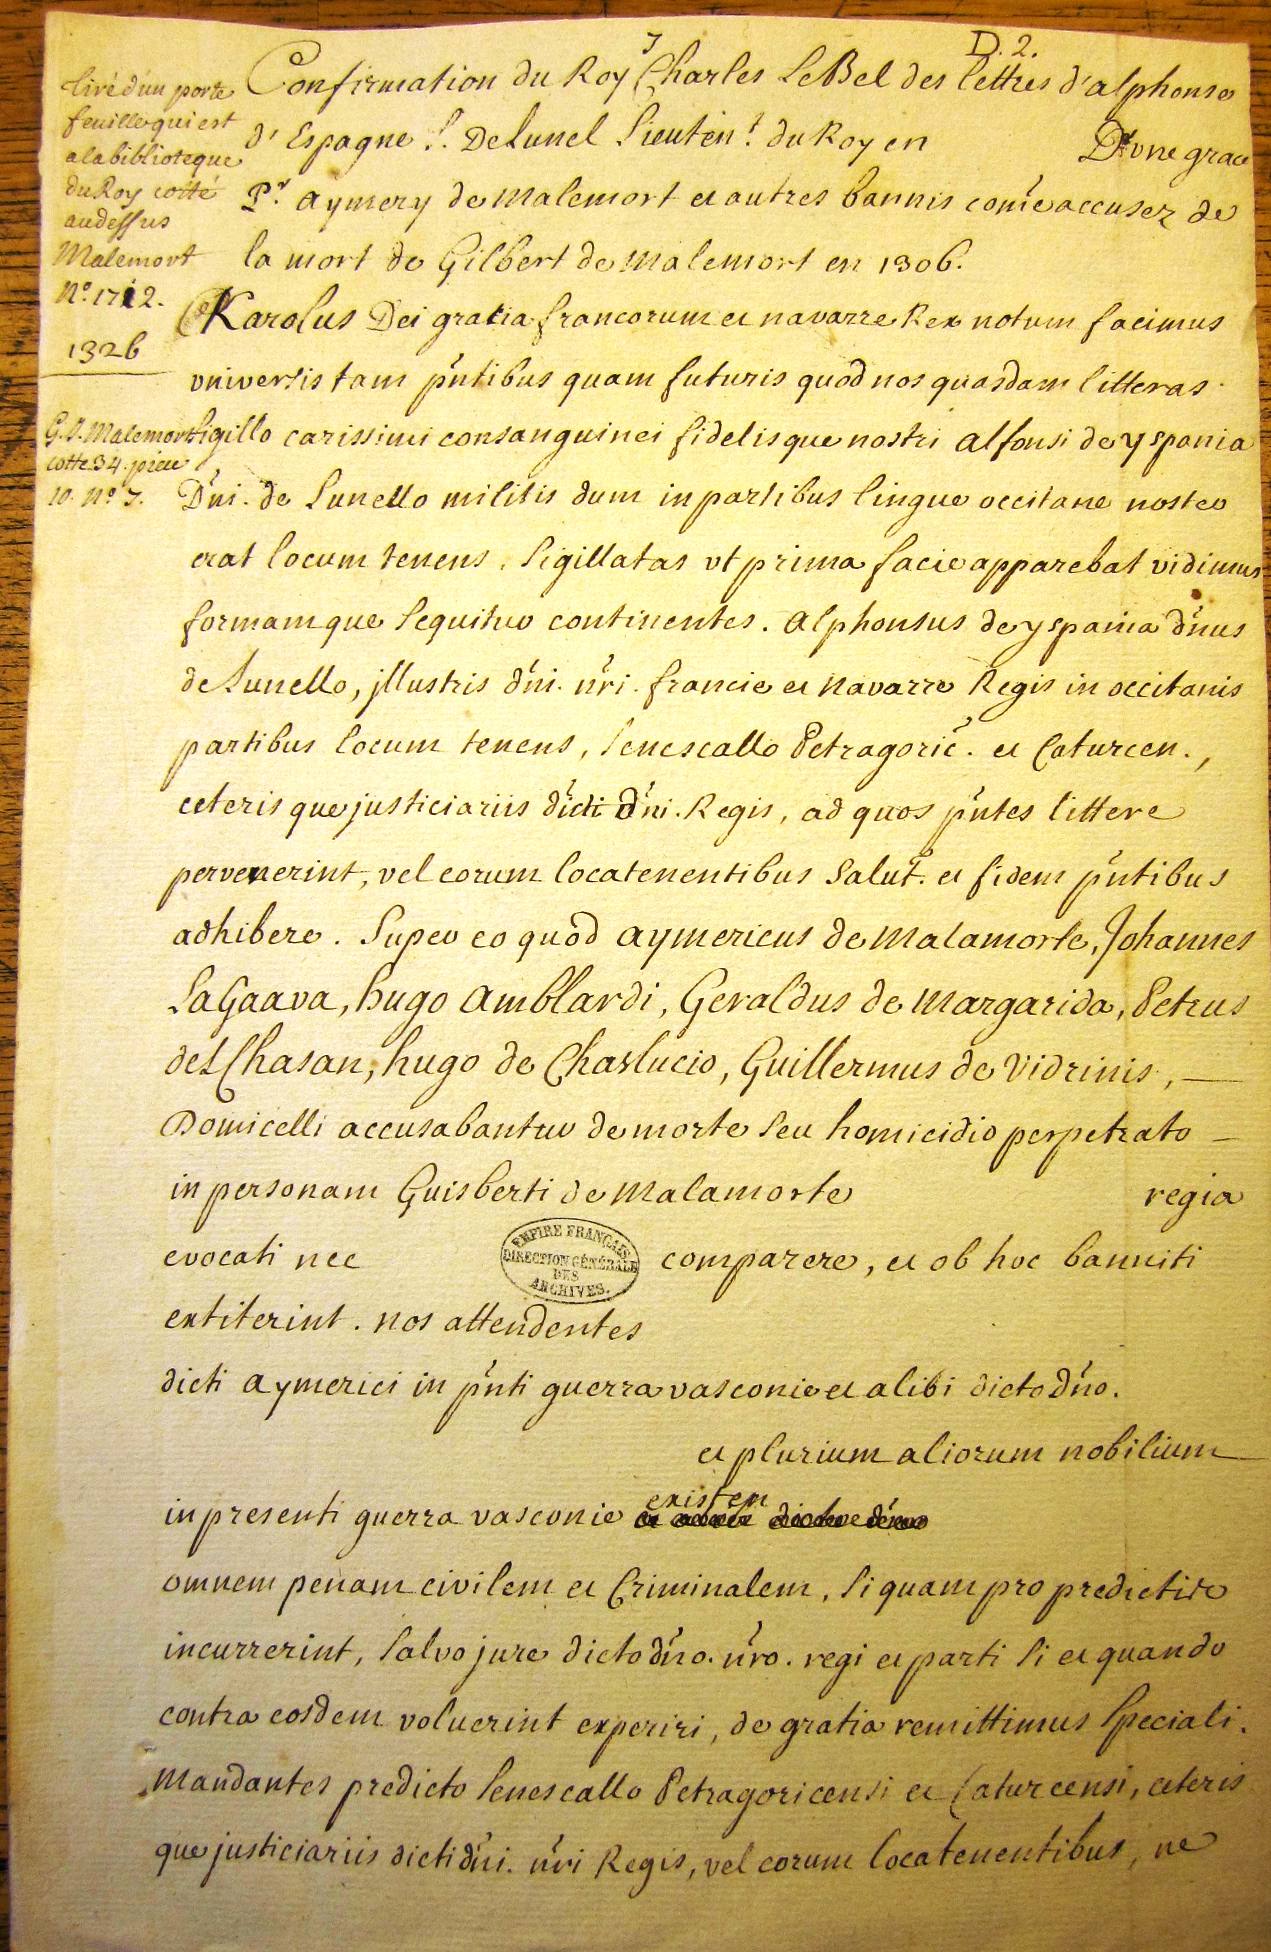 7
D. 2.
tiré d'un porte
feuille qui est
a la biblioteque
du Roy cotté
au dessus
Malemort
N.° 1712.
1326
G. I. Malemort
cotte 34. piece
10. N.° 7.
Confirmation du Roy Charles Le Bel des lettres d'alphonse
d'Espagne S.r De Lunel Lieuten.t du Roy en D'une grace
P.r aymery de Malemort et autres bannis com̄e accusez de
la mort de Gilbert de Malemort en 1306.
Karolus Dei gratia francorum et navarre Rex notum facimus
universis tam pn̄tibus quam futuris quod nos quasdam litteras
sigillo carissimi consanguinei fidelisque nostri alfonsi de yspania
Dn̄i. de Lunello militis dum in partibus lingue occitane noster
erat locum tenens, sigillatas ut prima facie apparebat vidimus
formam que sequitur continentes. Alphonsus de yspania dn̄us
de Lunello, jllustris dn̄i. nr̄i. francie et Navarre Regis in occitanis
partibus locum tenens, senescallo Petragoric̄. et Caturcen.,
ceteris que justiciariis dicti Dn̄i. Regis, ad quos pn̄tes littere
pervenerint, vel eorum locatenentibus Salut̄. et fidem pn̄tibus
adhibere. Super eo quod aymericus de Malamorte, Johannes
La Gaava, hugo Amblardi, Geraldus de Margarida, Petrus
del Chasan, hugo de Charlucio, Guillermus de Vidrinis,
Domicelli accusabantur de morte seu homicidio perpetrato
in personam Guisberti de Malamorte regia
evocati nec comparere, et ob hoc banniti
EMPIRE FRANÇAIS
DIRECTION GÉNÉRALE
DES
ARCHIVES.
extiterint. nos attendentes
dicti aymerici in pn̄ti guerra vasconie et alibi dicto dn̄o.
et plurium aliorum nobilium
in presenti guerra vasconie existen
omnem penam civilem et Criminalem, si quam pro predictis
incurrerint, salvo jure dicto dn̄o. nr̄o. regi et parti si et quando
contra eosdem voluerint experiri, de gratia remittimus speciali.
Mandantes predicto senescallo Petragoricensi et Caturcensi, ceteris
que justiciariis dicti dn̄i. nr̄i Regis, vel eorum locatenentibus, ne